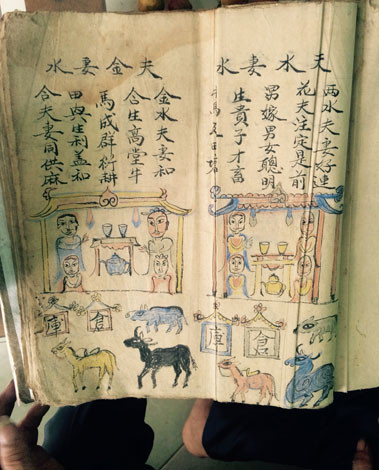 夫水妻水
两水夫妻好連
花夫注定是前
男嫁男女聰明
生貴子才畜
馬
倉
庫
夫金妻水
金水夫妻和
合生高堂牛
馬成群衍耕
田與生利盖和
合夫妻同供麻
倉
庫